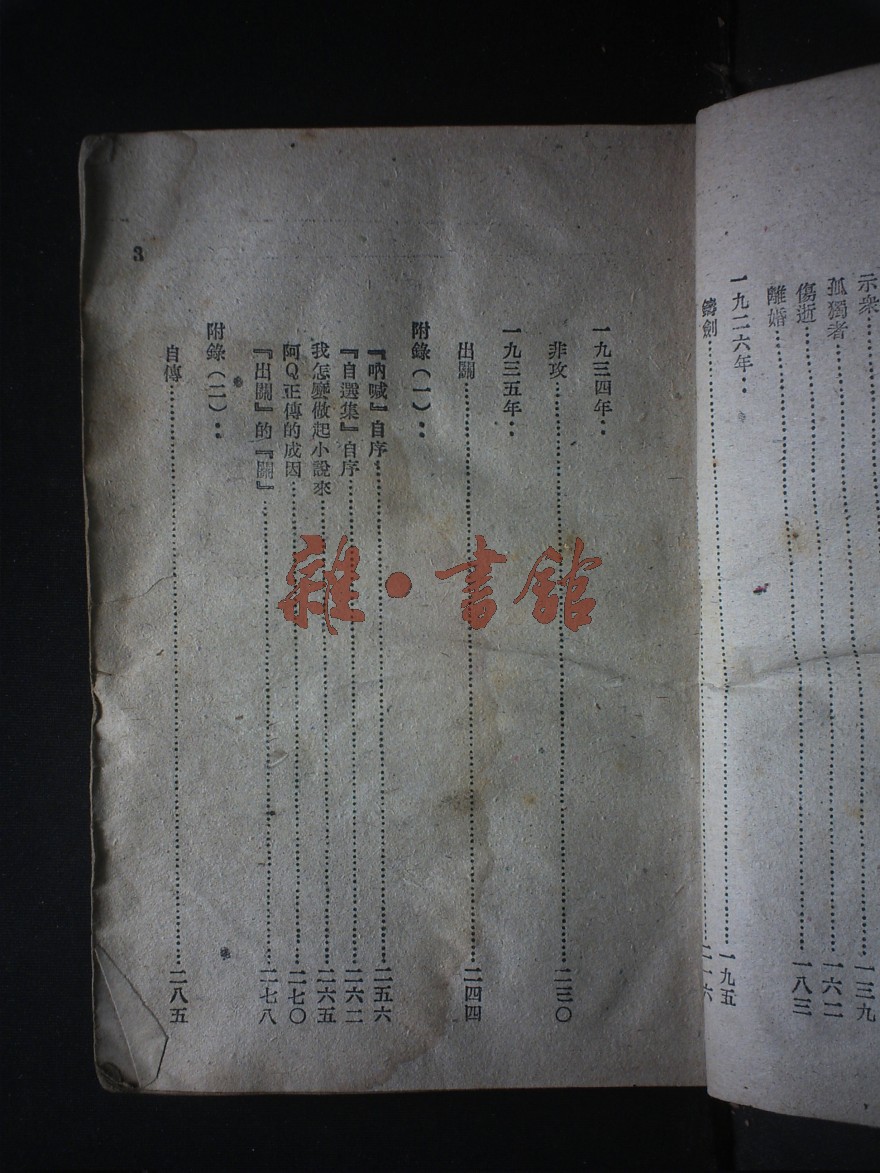 示衆
孤獨者……一三九
傷逝……一六二
離婚……一八三
一九二六年：
鑄劍……一九五
……二一六
一九三四年：
非攻……二三〇
一九三五年：
出關……二四四
附錄（一）：
『吶喊』自序……二五六
『自選集』自序……二六二
我怎麽做起小說來……二六五
阿Q正傳的成因……二七〇
『出關』的『關』……二七八
附錄（二）：
自傳……二八五
3
雜·書館